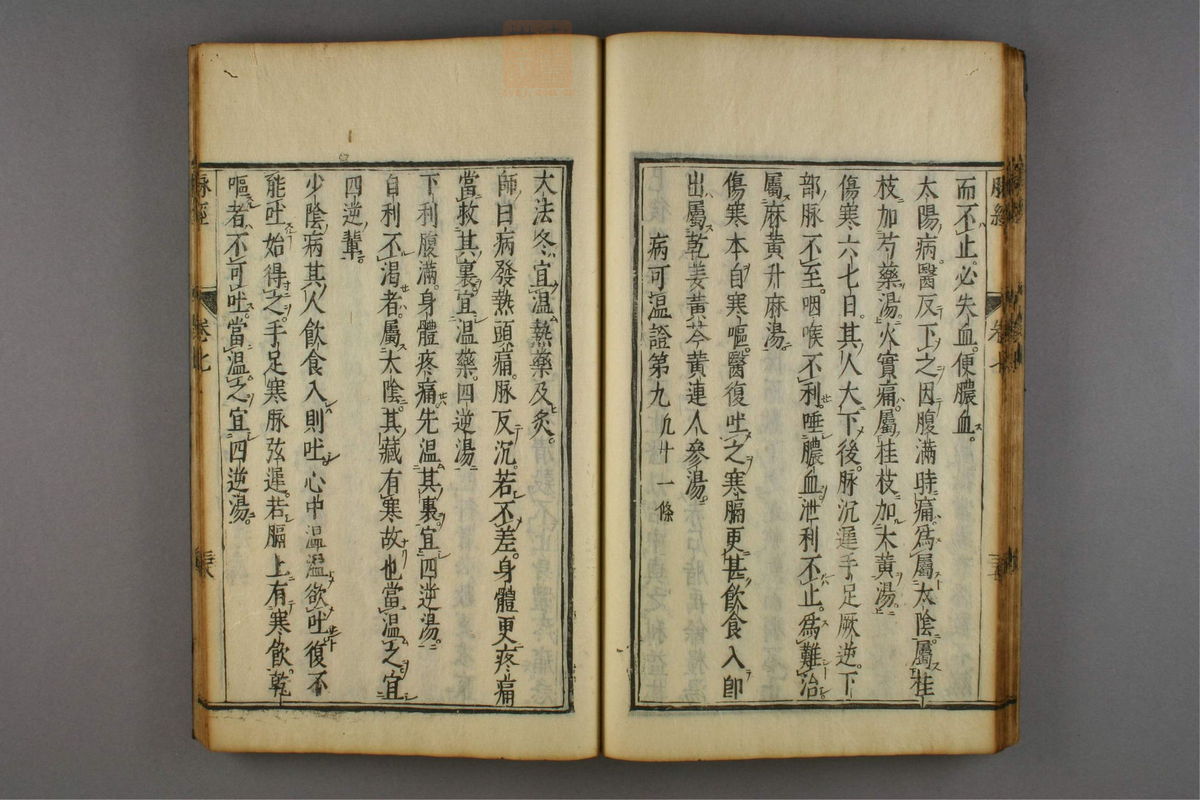 而不止必失血便膿血
太陽病醫反下之因腹滿時痛爲屬太陰屬桂
枝加芍藥湯火實痛屬桂枝加大黃湯
傷寒六七日其人大下後脉沉遲手足厥逆下
部脉不至咽喉不利唾膿血泄利不止爲難治
屬麻黃升麻湯
傷寒本自寒嘔醫復吐之寒膈更甚飲食入卽
出屬乾姜黃芩黃連人參湯
病可溫證第九 凡十一條
脉經 卷七
大法冬宜溫熱藥及灸
師曰病發熱頭痛脉反沉若不差身體更疼痛
當救其裏宜溫藥四逆湯
下利腹滿身體疼痛先溫其裏宜四逆湯
自利不渴者屬太陰其藏有寒故也當溫之宜
四逆輩
少陰病其人飲食入則吐心中溫溫欲吐復不
能吐始得之手足寒脉弦遲若膈上有寒飲乾
嘔者不可吐當溫之宜四逆湯
脉經 卷七